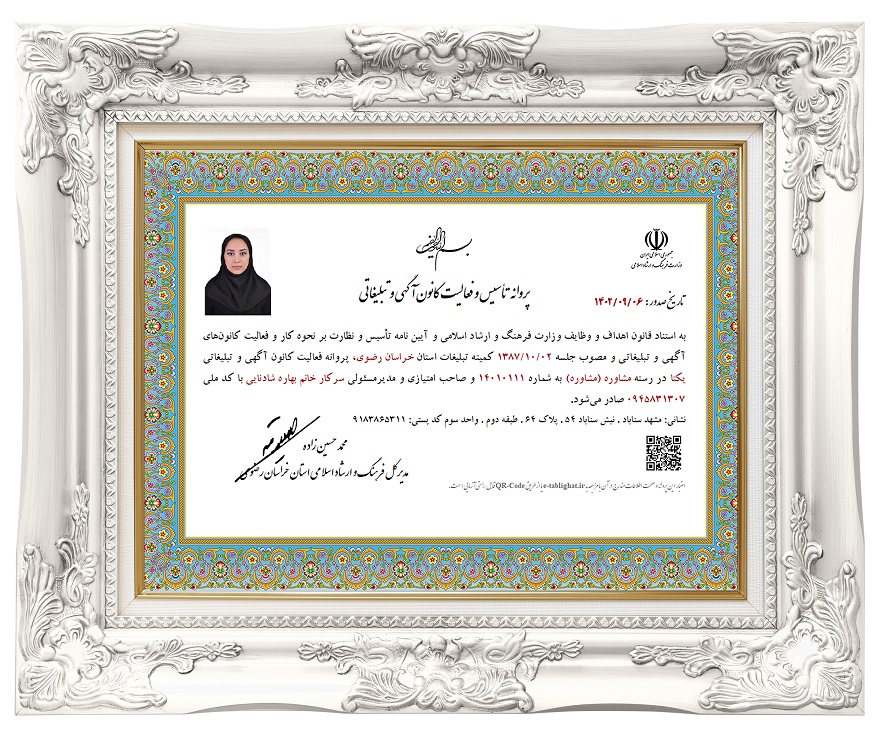 جمهوری اسلامی ایران
وزارت فرهنگ و ارشاد اسلامی
تاریخ صدور: ۱۴۰۲/۰۹/۰۶
پروانه تأسیس و فعالیت کانون آگهی و تبلیغاتی
به استناد قانون اهداف و وظایف وزارت فرهنگ و ارشاد اسلامی و آیین نامه تأسیس و نظارت بر نحوه کار و فعالیت کانون‌های
آگهی و تبلیغاتی و مصوب جلسه ۱۳۸۷/۱۰/۰۲ کمیته تبلیغات استان خراسان رضوی، پروانه فعالیت کانون آگهی و تبلیغاتی
یکتا در رسته مشاوره (مشاوره) به شماره ۱۴۰۱۰۱۱۱ و صاحب امتیازی و مدیرمسئولی سرکار خانم بهاره شادنایی با کد ملی
۰۹۴۵۸۳۱۳۰۷ صادر می‌شود.
نشانی: مشهد سناباد . نبش سناباد ۵۴ . پلاک ۶۴ . طبقه دوم . واحد سوم کد پستی: ۹۱۸۳۸۶۵۳۱۱
محمد حسین زاده
مدیرکل فرهنگ و ارشاد اسلامی استان خراسان رضوی
اعتبار این پروانه و صحت اطلاعات مندرج در آن با مراجعه به e-tablighat.ir یا از طریق QR-Code قابل راستی آزمایی است.